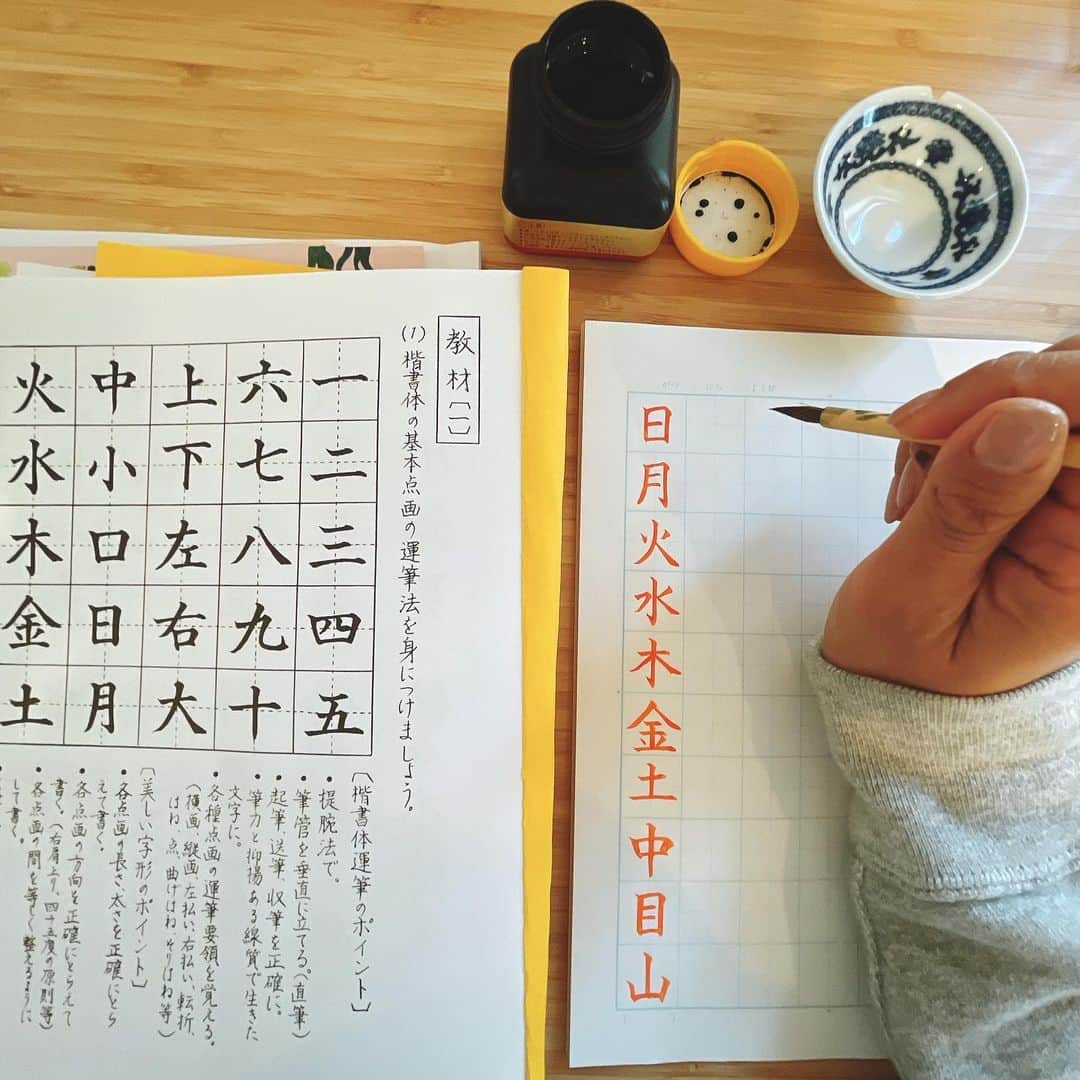 教材〔一〕
(1) 楷書体の基本点画の運筆法を身につけましょう。
一二三四五
六七八九十
上下左右大
中小口日月
火水木金土
〔楷書体運筆のポイント〕
・提腕法で。
・筆管を垂直に立てる。(直筆)
・起筆、送筆、収筆を正確に。
・筆力と抑揚ある線質で生きた
文字に。
・各種点画の運筆要領を覚える。
(横画、縦画、左払い、右払い、転折、
はね、点、曲げはね、そりはね等)
〔美しい字形のポイント〕
・各点画の長さ、太さを正確にとら
えて書く。
・各点画の方向を正確にとらえて
書く。(右肩上り、四十五度の原則等)
・各点画の間を等しく整えるように
して書く。
日月火水木金土中目山